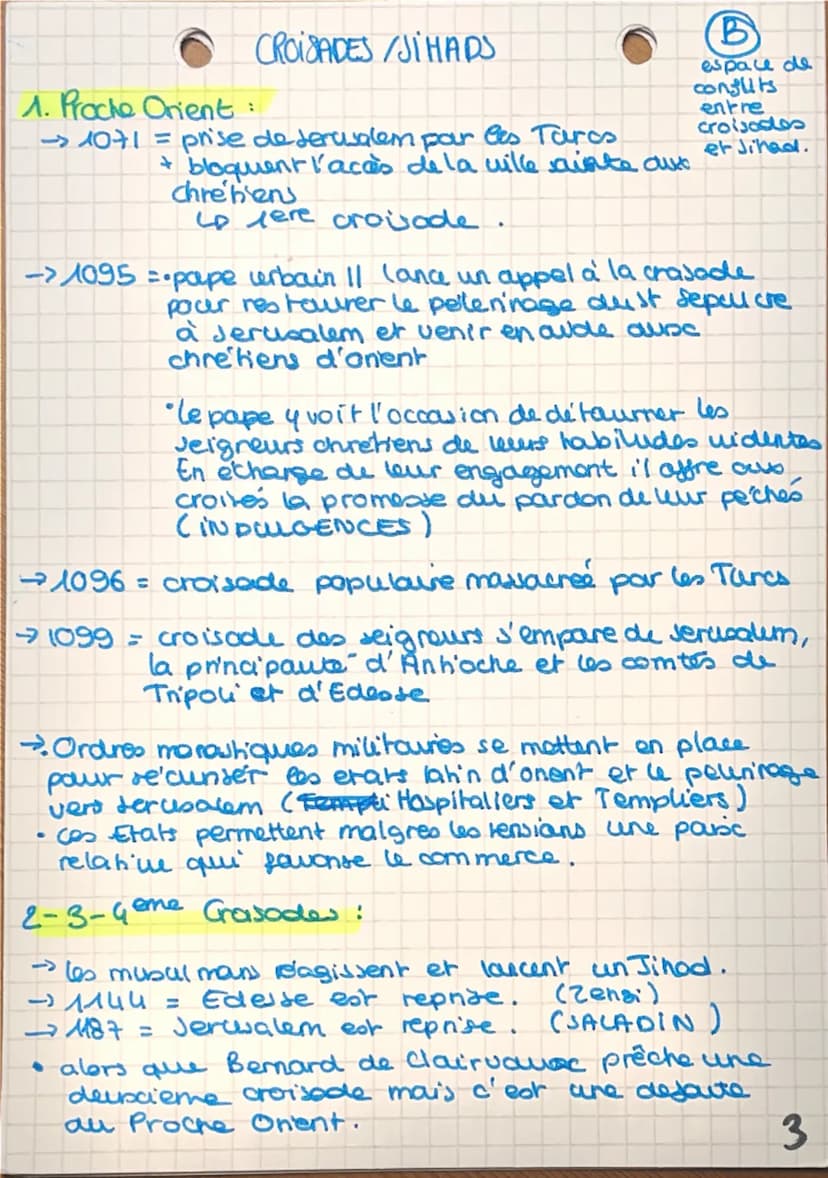 CROISADES / JIHADS
B
espace de
conflits
entre
croisades
et Jihad.
1. Proche Orient :
→ 1071 = prise de Jerusalem par les Turcs
+ bloquent l'accès de la ville sainte aux
chrétiens
↳ 1ere croisade .
→ 1095 = • pape urbain II lance un appel à la croisade
pour restaurer le pelerinage du st Sepulcre
à Jerusalem et venir en aide aux
chrétiens d'orient
• le pape y voit l'occasion de détourner les
seigneurs chretiens de leurs habitudes violentes
En échange de leur engagement il offre aux
croisés la promesse du pardon de leur péchés
(INDULGENCES)
→ 1096 = croisade populaire massacreé par les Turcs
→ 1099 = croisade des seigneurs s'empare de Jerusalem,
la principauté d'Antioche et les comtés de
Tripoli et d'Edesse
→. Ordres monastiques militaires se mettent en place
pour sécuriser les etats latin d'orient et le pelerinage
vers Jerusalem ( Hospitaliers et Templiers)
• ces Etats permettent malgres les tensions une paix
relative qui favorise le commerce.
2-3-4eme Croisades :
→ les musulmans réagissent et lancent un Jihad.
→ 1144 = Edesse est reprise. (Zengi)
→ 1187 = Jerusalem est reprise. (SALADIN)
• alors que Bernard de Clairvaux prêche une
deuxieme croisade mais c'est une defaite
au Proche Orient.
3